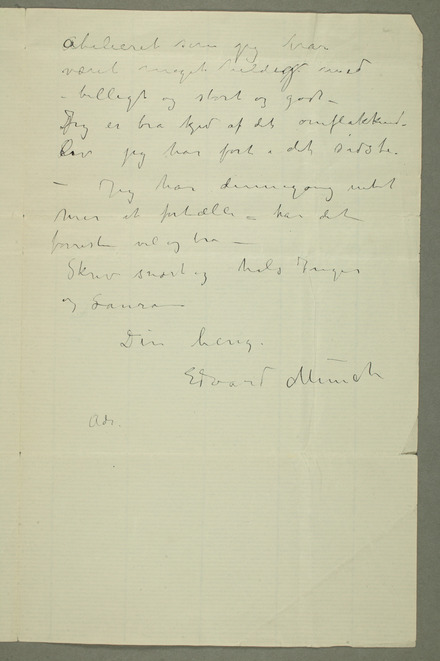 atelieret som jeg har
været meget heldig med
– billigt og stort og godt –
Jeg er bra kjed af det omflakkende
Liv jeg har ført i det sidste.
– Jeg har dennegang intet
mer at fortælle – har det
forresten vel og bra –
Skriv snart og hils Inger
og Laura –
Din heng.
Edvard Munch
Adr.